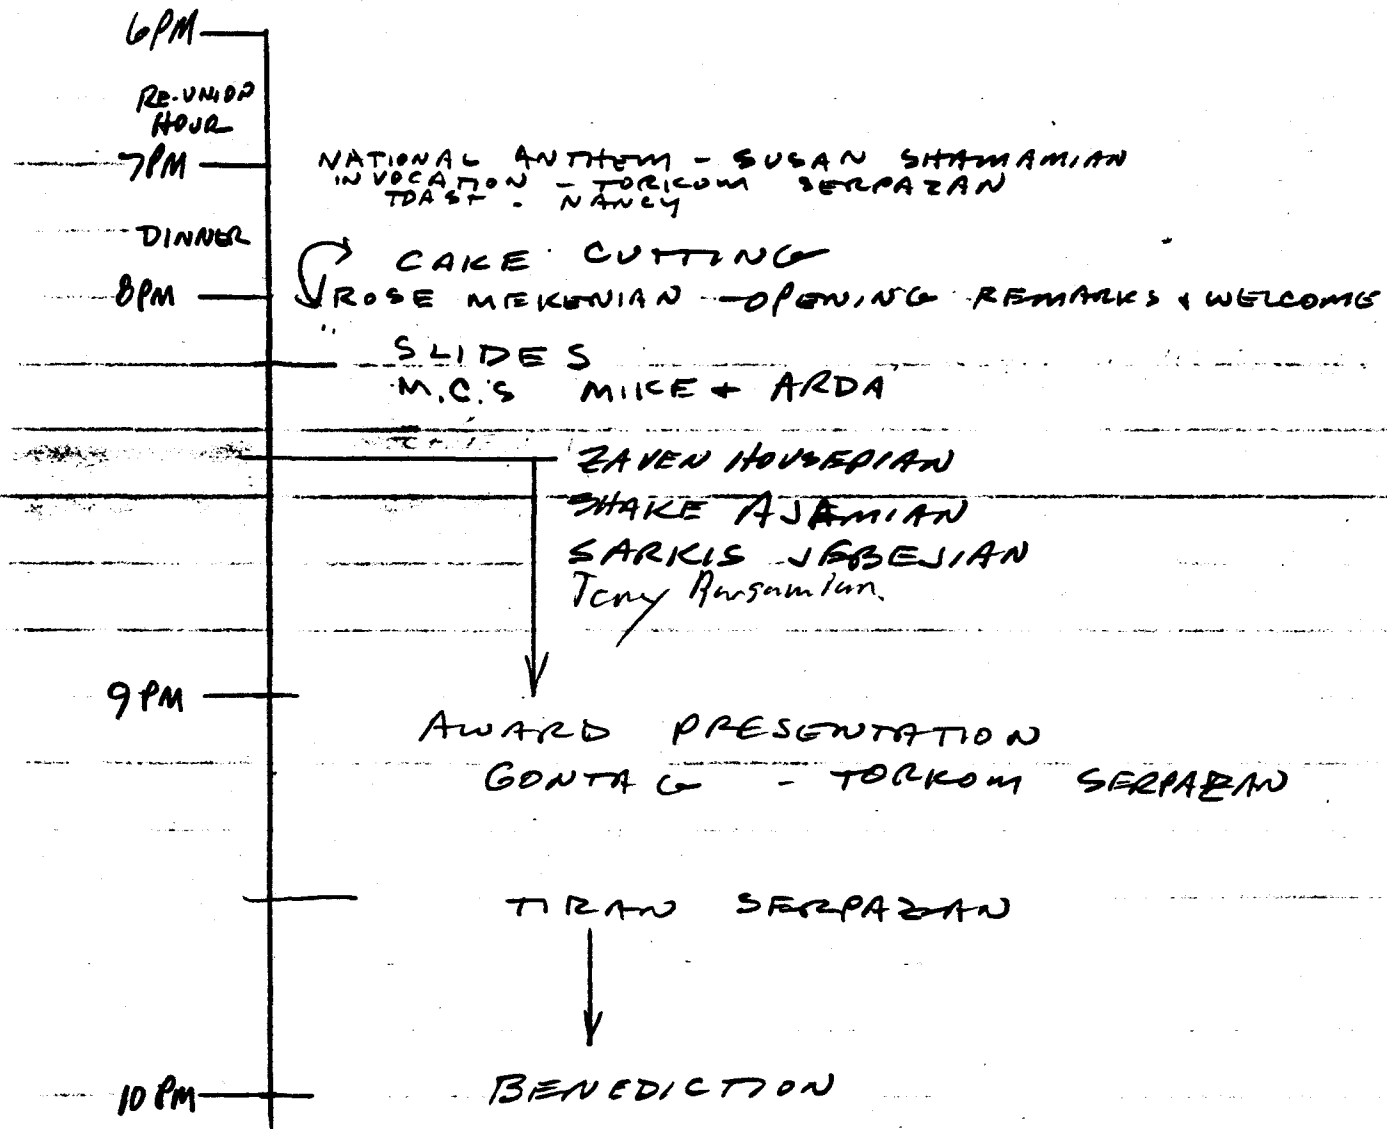 6PM
RE-UNION
HOUR
7PM
NATIONAL ANTHEM - SUSAN SHAMAMIAN
INVOCATION - TORKOM SERPAZAN
TOAST - NANCY
DINNER
CAKE CUTTING
8PM
ROSE MEKENIAN - OPENING REMARKS & WELCOME
SLIDES
M.C.'S MIKE + ARDA
ZAVEN HOVSEPIAN
SHAKE AJAMIAN
SARKIS JEBEJIAN
9 PM
AWARD PRESENTATION
GONTAG - TORKOM SERPAZAN
TIRAN SERPAZAN
10 PM
BENEDICTION